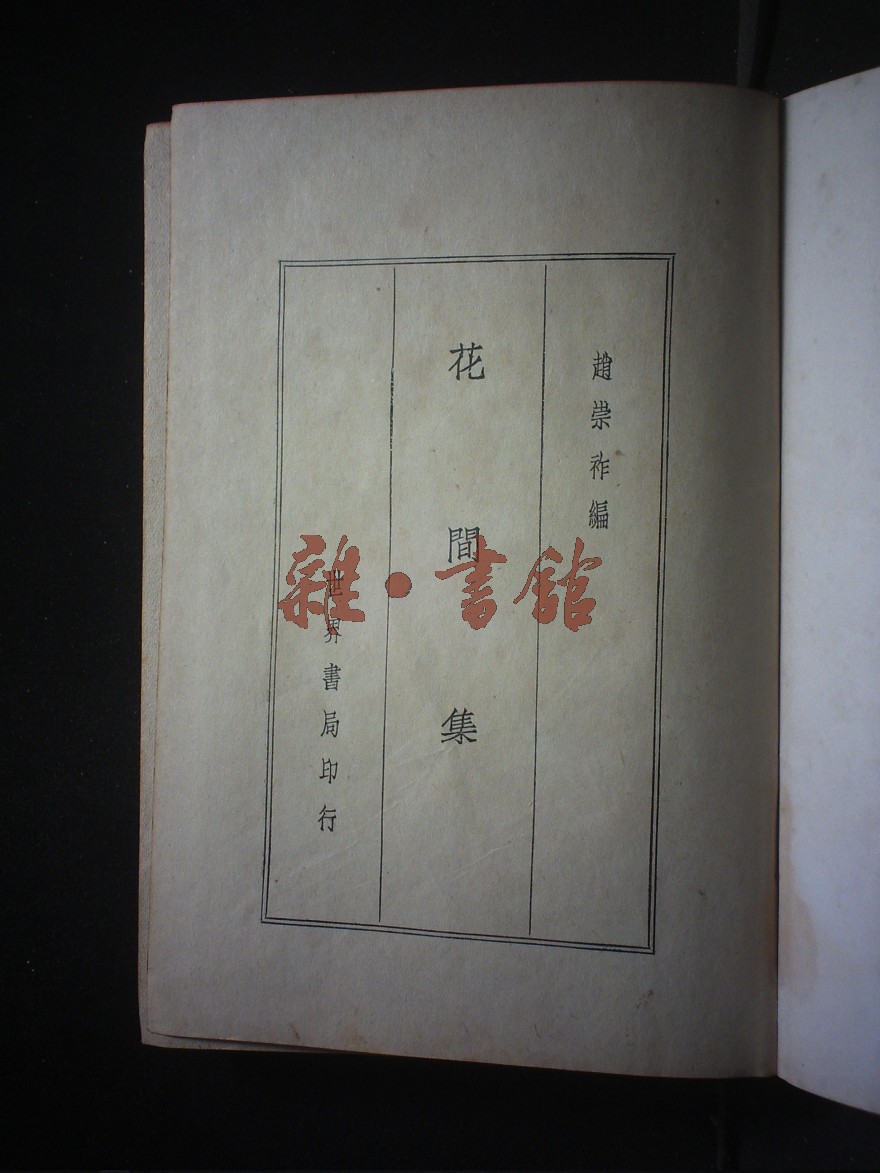 趙崇祚編
花間集
世界書局印行
雜·書館